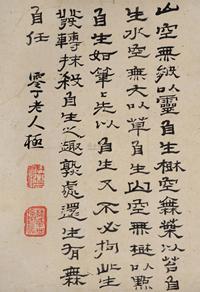 山空無紋以靈自生樹空無葉以苔自
生水空無天以草自生山空無樹以點
自生如筆〻步以自生又不必拘此生
發轉抹殺自生之趣熟處還生有無
自任
零丁老人極